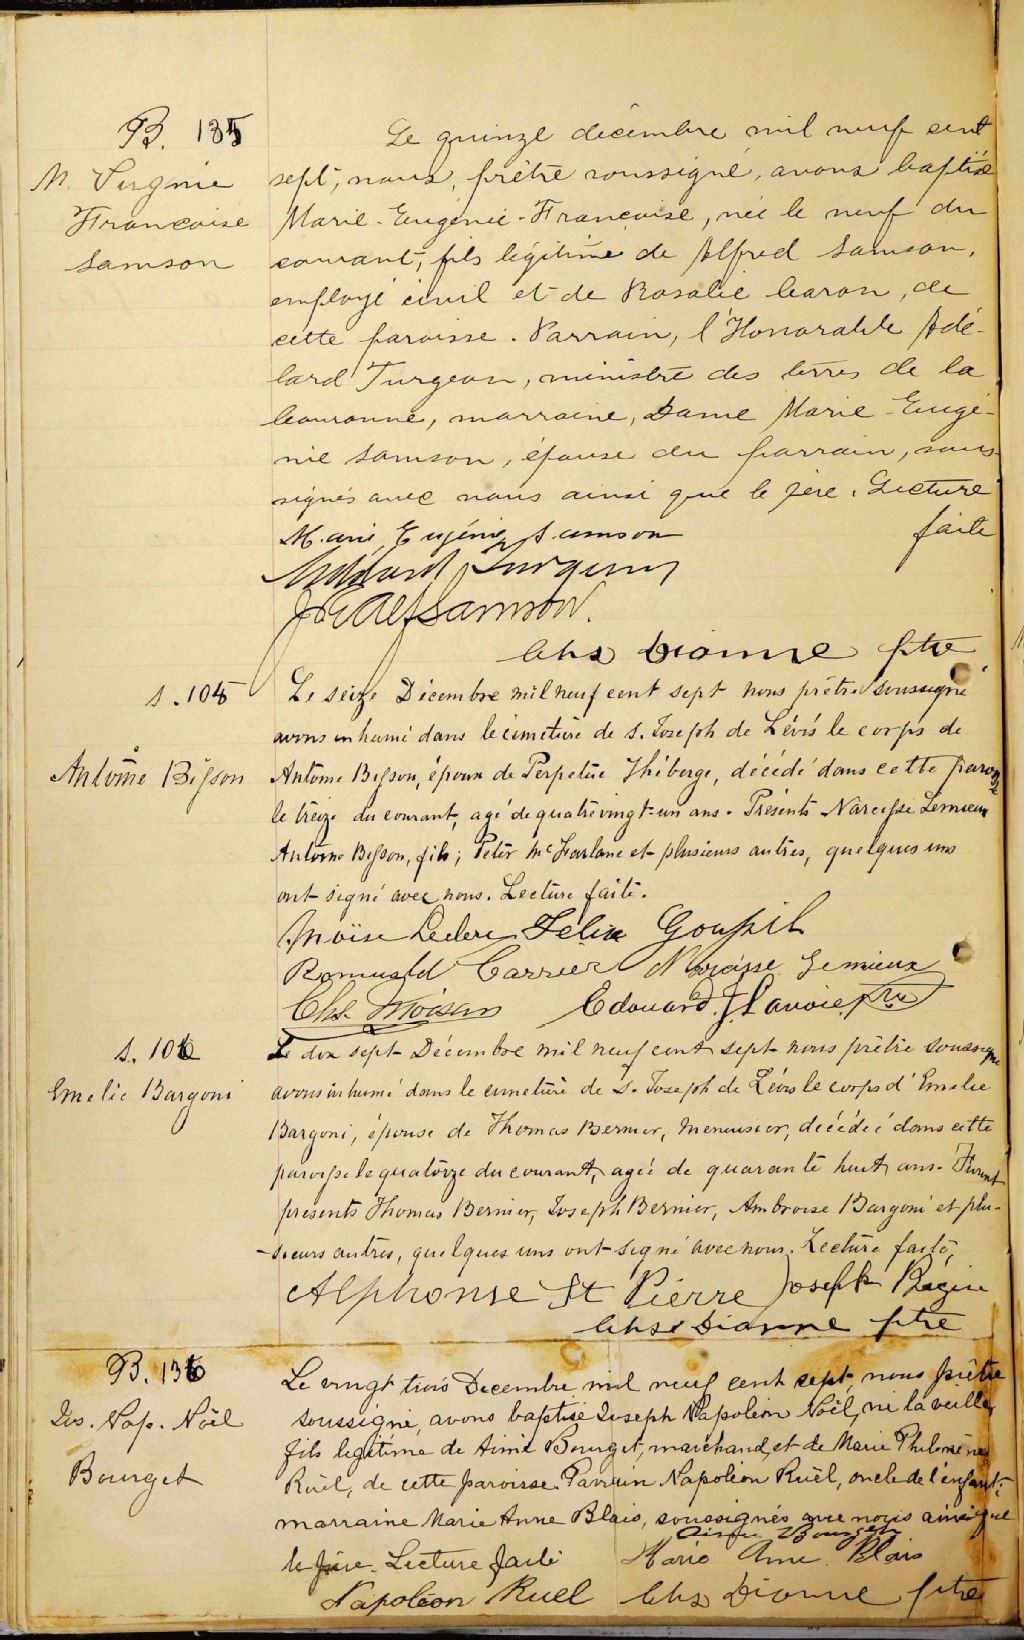 B. 135
M. Virginie
Françoise
Samson
Le quinze décembre mil neuf cent
sept, nous, prêtre soussigné, avons baptisé
Marie-Eugénie-Françoise, née le neuf du
courant, fils légitime de Alfred Samson,
employé civil et de Rosalie Caron, de
cette paroisse. Parrain, l'Honorable Adé-
lard Turgeon, ministre des terres de la
Couronne, marraine, Dame Marie-Eugé-
nie Samson, épouse du parrain, sous-
signés avec nous ainsi que le père. Lecture
faite
Marie Eugénie Samson
Adélard Turgeon
Samson.
Chs Dionne ptre
S. 105
Antoine Bisson
Le seize Décembre mil neuf cent sept nous prêtre soussigné
avons inhumé dans le cimetière de S. Joseph de Lévis le corps de
Antoine Bisson, époux de Perpetue Théberge, décédé dans cette paroisse
le treize du courant, agé de quatrevingt-un ans. Présents Narcisse Lemieux
Antoine Bisson, fils; Peter McFarlane et plusieurs autres, quelques uns
ont signé avec nous. Lecture faite.
Moïse Leclerc Félix Goupil
Romuald Carrier Narcisse Lemieux
Chs. Moisan Edouard J. Lavoie, ptre
S. 106
Emelie Bargoni
Le dix sept Décembre mil neuf cent sept nous prêtre soussigné
avons inhumé dans le cimetière de S. Joseph de Lévis le corps d'Emelie
Bargoni, épouse de Thomas Bernier, menuisier, décédée dans cette
paroisse le quatorze du courant, agée de quarante huit ans. Furent
présents Thomas Bernier, Joseph Bernier, Ambroise Bargoni et plu-
-sieurs autres, quelques uns ont signé avec nous. Lecture faite,
Alphonse St Pierre Joseph Bégin
Chs Dionne ptre
B. 136
Jos. Nap. Noël
Bourget
Le vingt trois Decembre mil neuf cent sept, nous prêtre
soussigné, avons baptisé Joseph Napoléon Noël, né la veille,
fils legitime de Aimé Bourget, marchand, et de Marie Philomène
Ruel, de cette paroisse. Parrain Napoléon Ruël, oncle de l'enfant;
marraine Marie Anne Blais, soussignés avec nous ainsi que
le père. Lecture faite Aimé Bourget
Marie Anne Blais
Napoléon Ruel Chs Dionne ptre